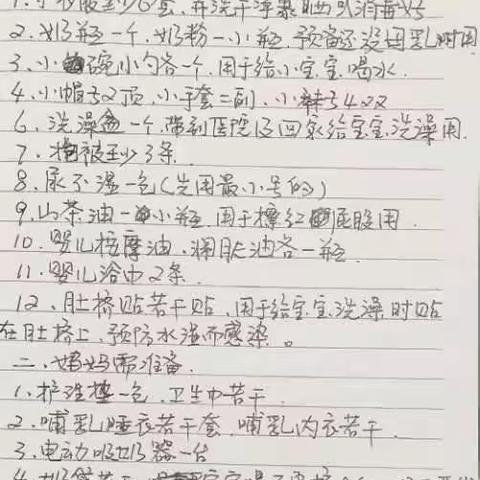 1.小衣服至少6套,再洗干净暴晒
2.奶瓶一个,奶粉一小瓶,预备还没母乳时用
3.小碗小勺各一个,用于给小宝宝喝水.
4.小帽子2顶,小手套二副,小袜子4双
6.洗澡盆一个,带到医院泻回家给宝宝洗澡用.
7.抱被至少3条.
8.尿不湿一包(先用最小号的)
9.山茶油一小瓶,用于擦红屁股用.
10.婴儿按摩油,润肤油各一瓶.
11.婴儿浴巾2条.
12.肚挤贴若干贴,用于给宝宝洗澡时贴
在肚挤上,预防水湿而感染。
二.妈妈需准备.
1.护理垫一包,卫生巾若干.
2.哺乳睡衣若干套,哺乳内衣若干.
3.电动吸奶器一台